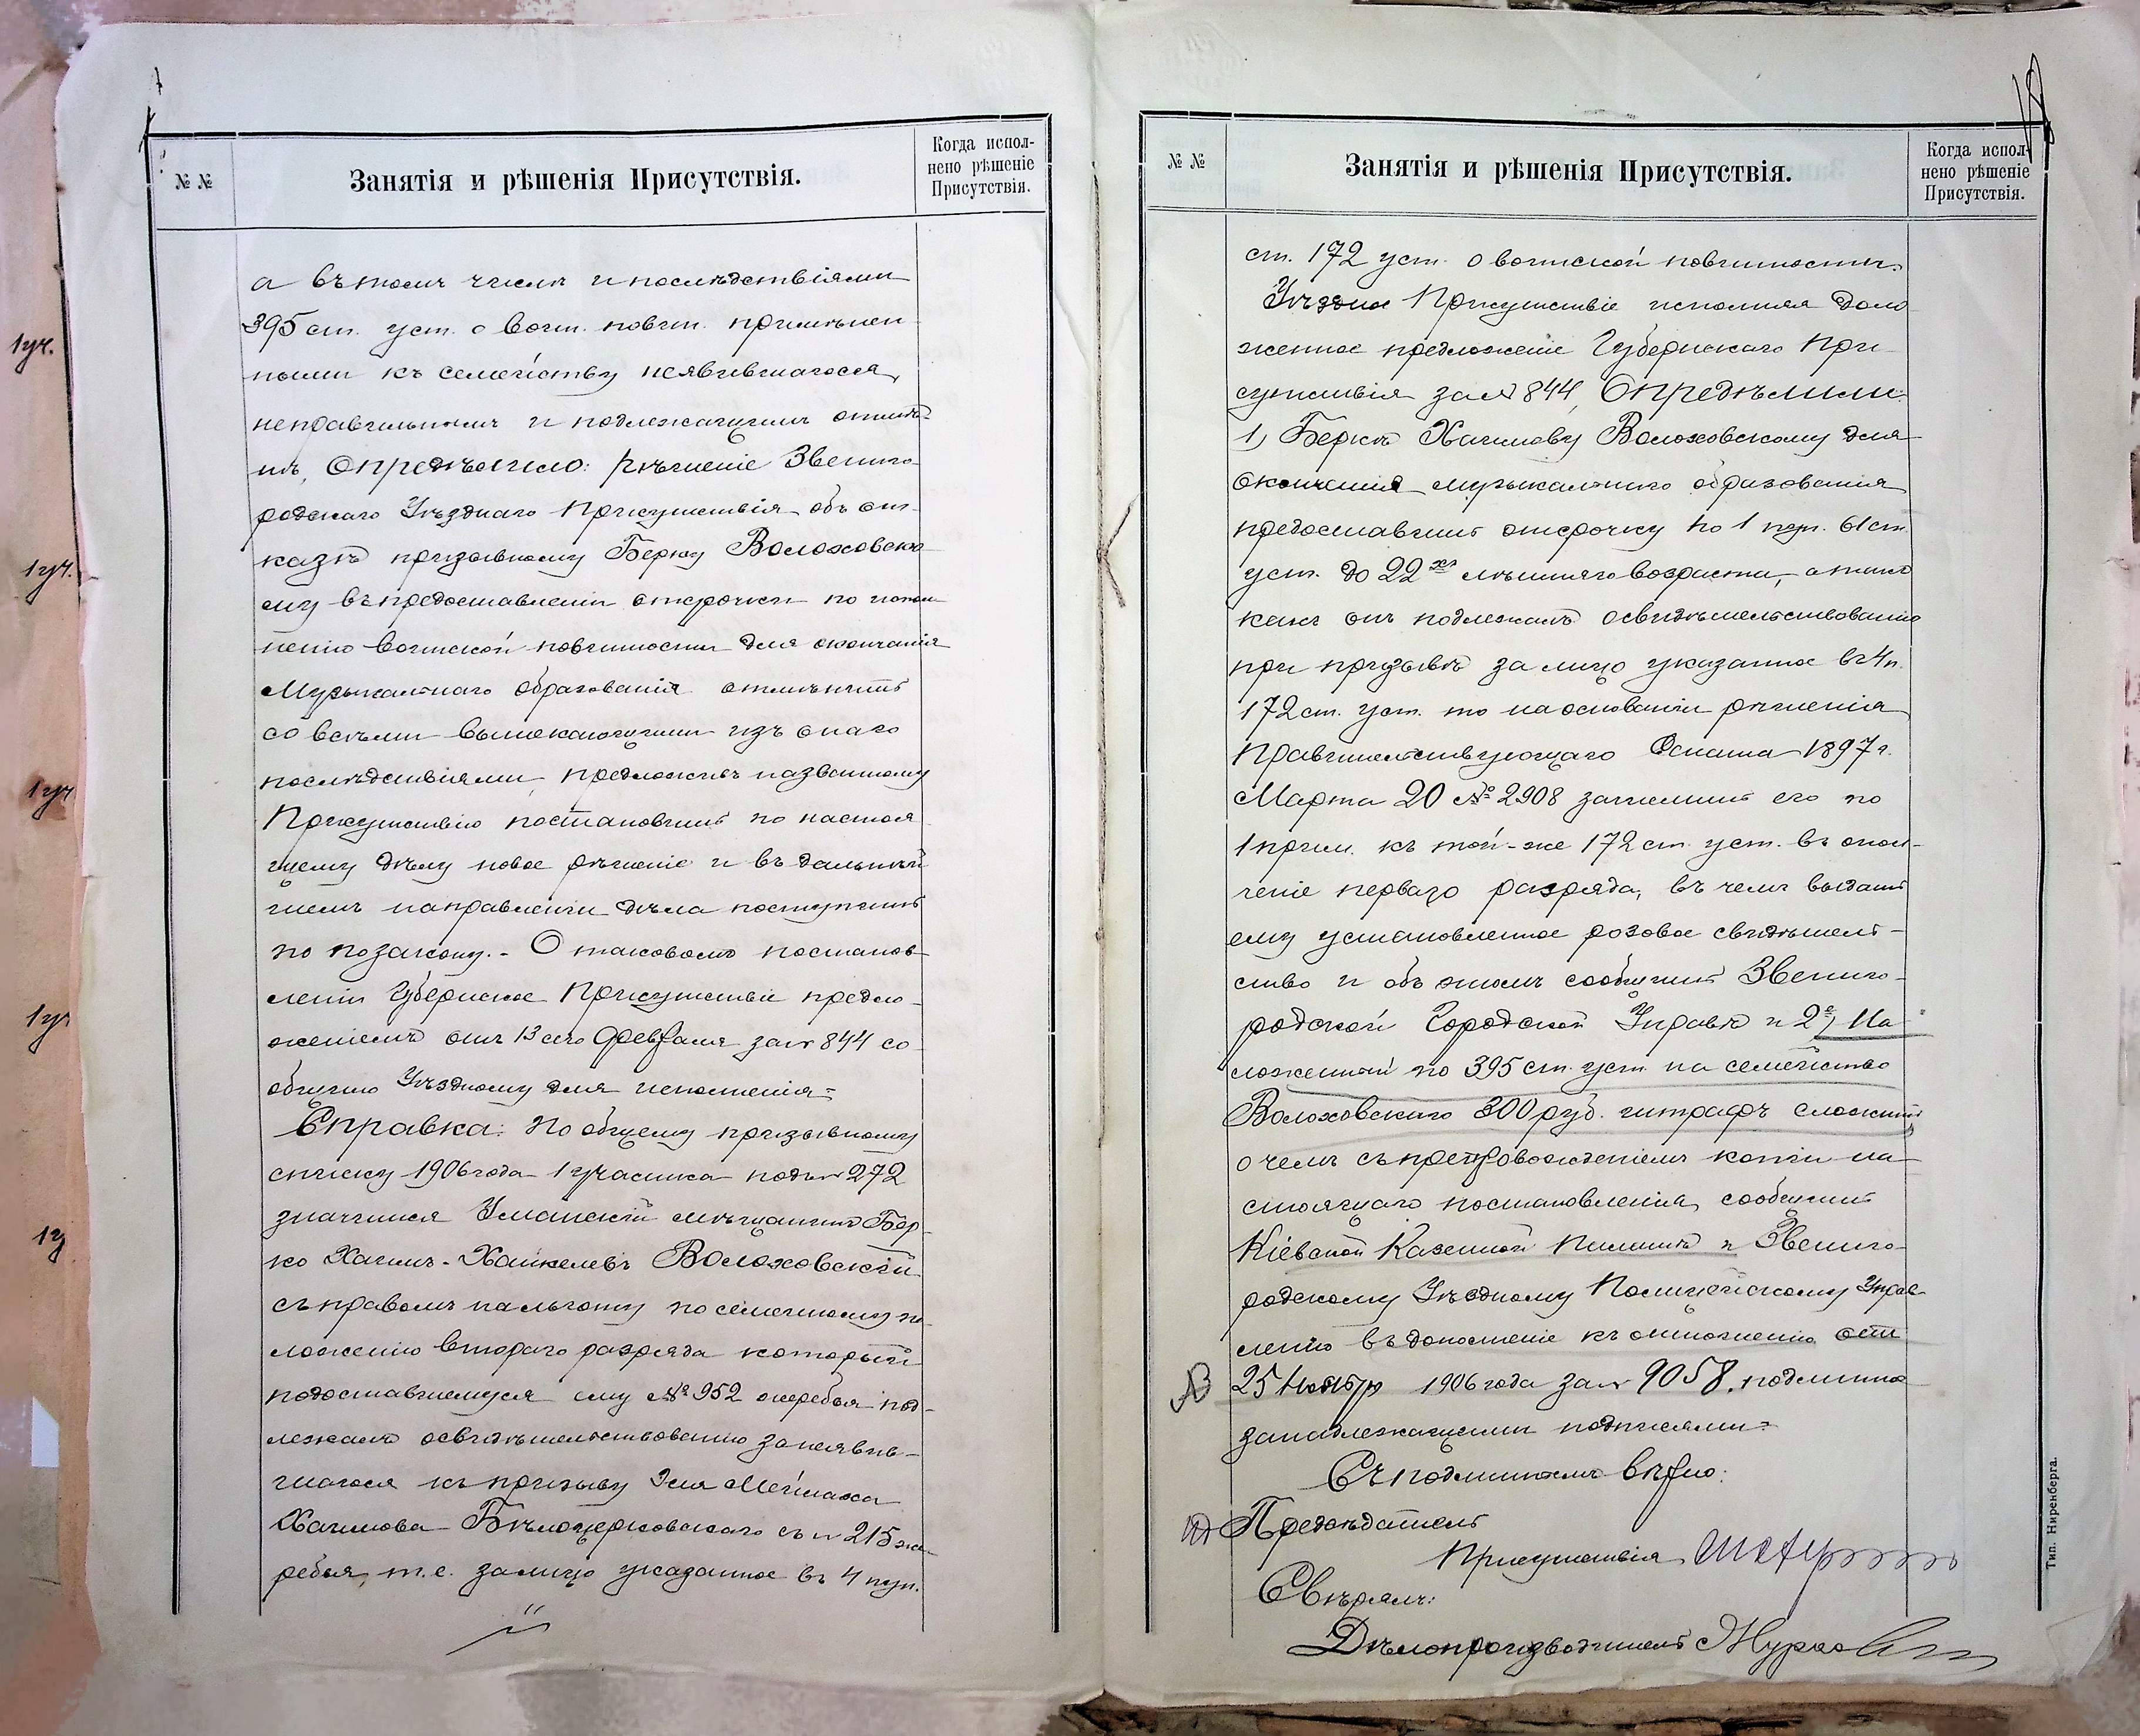 1уч.
1уч.
1уч
1уч
1у
№ №
Занятія и рѣшенія Присутствія.
Когда испол-
нено рѣшеніе
Присутствія.
а въ томъ числѣ и послѣдствіями
395 ст. уст. о воин. повин. примѣнен
ными къ семейству неявившагося,
неправильнымъ и подлежащимъ отмѣ-
нѣ, Опредѣлило: рѣшеніе Звениго-
родскаго Уѣзднаго Присутствія объ от-
казѣ призывному Берку Волоховско
му въ предоставленіи отсрочки по испол
ненію воинской повинности для окончанія
музыкальнаго образованія отмѣнить
со всѣми вытекающими изъ онаго
послѣдствіями, предложивъ названному
Присутствію постановить по настоя
щему дѣлу новое рѣшеніе и въ дальнѣй
шемъ направленіи дѣла поступить
по по закону.- О таковомъ постанов-
леніи Губернское Присутствіе предло-
женіемъ отъ 13 сего Февраля за № 844 со
общило Уѣздному для исполненія=
Справка: По общему призывному
списку 1906 года 1 участка подъ № 272
значится Уманскій мѣщанинъ Бер-
ко Хаимъ-Хайкелевъ Волоховскій
съ правомъ на льготу по семейному по-
ложенію второго разряда который
по доставшемуся ему № 952 жеребья под-
лежалъ освидѣтельствованію за неявив-
шагося къ призыву Эля Меймаха
Хаимова Бѣлоцерковскаго съ № 215 же-
ребья, т.е. за лицо указанное въ 4 пун.
№ №
Занятія и рѣшенія Присутствія.
Когда испол-
нено рѣшеніе
Присутствія.
ст. 172 уст. о воинской повинности.
Уѣздное Присутствіе исполняя доло
женное предложеніе Губернскаго При-
сутствія за № 844, Опредѣлили:
1, Беркѣ Хаимову Волоховскому для
окончанія музыкальнаго образованія
предоставить отсрочку по 1 пун. 61 ст.
уст. до 22хъ лѣтняго возраста, а такъ
какъ онъ подлежалъ освидѣтельствованію
при призывѣ за лицо указанное въ 4 п.
172 ст. уст. то на основаніи рѣшенія
Правительствующаго Сената 1897 г.
Марта 20 № 2908 зачислить его по
1 прим. къ той-же 172 ст. уст. въ опол-
ченіе перваго разряда, въ чемъ выдать
ему установленное розовое свидѣтель-
ство и объ этомъ сообщить Звениго-
родской Городской Управѣ и 2е, На
ложенный по 395 ст. уст. на семейство
Волоховскаго 300 руб. штрафъ сложить
о чемъ съ препровожденіемъ копіи на
стоящаго постановленія, сообщить
Кіевской Казенной Палатѣ и Звениго-
родскому Уѣздному Полицейскому Управ
ленію въ дополненіе къ отношенію отъ
25 Ноября 1906 года за № 9058. подлинное
за надлежащими подписями=
Съ подлиннымъ вѣрно:
Предсѣдатель
Присутствія
Свѣрялъ:
Дѣлопроизводитель
Тип. Ниренберга.